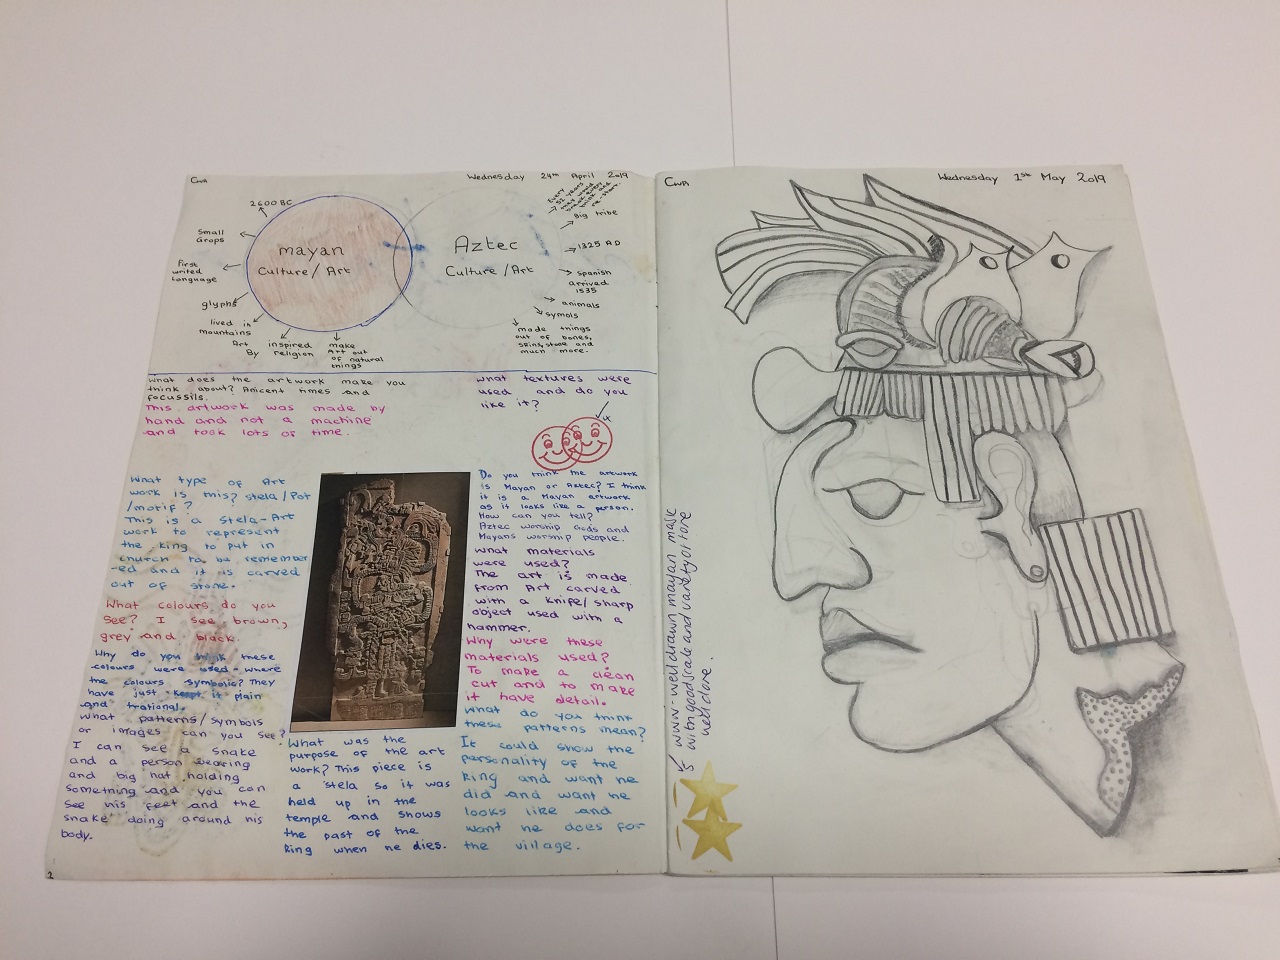 CWA
Wednesday 24th April 2019
2600 BC
Small
Grops
First
writed
Language
glyphs
lived in
mountains
Art inspired
By religion
make
Art out
of natural
things
mayan
Culture / Art
Aztec
Culture / Art
Every
52 years
they would
Big tribe
1325 AD
Spanish
arrived
1535
animals
Symols
made things
out of bones,
skins, stone and
much more.
What does the artwork make you
think about? Anicent times and
focussils.
This artwork was made by
hand and not a machine
and took lots of time.
What textures were
used and do you
like it?
What type of Art
work is this? stela/Pot
/motif?
This is a Stela-Art
work to represent
the king to put in
church to be remember
-ed and it is carved
out of stone.
What colours do you
see? I see brown,
grey and black.
Why do you think these
colours were used where
the colours symbolic? They
have just kept it plain
and trational.
What patterns/symbols
or images can you see?
I can see a snake
and a person wearing
and big hat holding
something and you can
see his feet and the
snake doing around his
body.
What was the
purpose of the art
work? This piece is
a stela so it was
held up in the
temple and shows
the past of the
King when he dies.
Do you think the artwork
is Mayan or Aztec? I think
it is a Mayan artwork
as it looks like a person.
How can you tell?
Aztec worship gods and
Mayans worship people.
What materials
were used?
The art is made
from Art carved
with a knife/sharp
object used with a
hammer.
Why were these
materials used?
To make a clean
cut and to make
it have detail.
What do you think
these patterns mean?
It could show the
personality of the
King and want he
did and want he
looks like and
want he does for
the village.
2
CWA
Wednesday 1st May 2019
www - well drawn mayan mask
with good scale and variety of tone
well done.